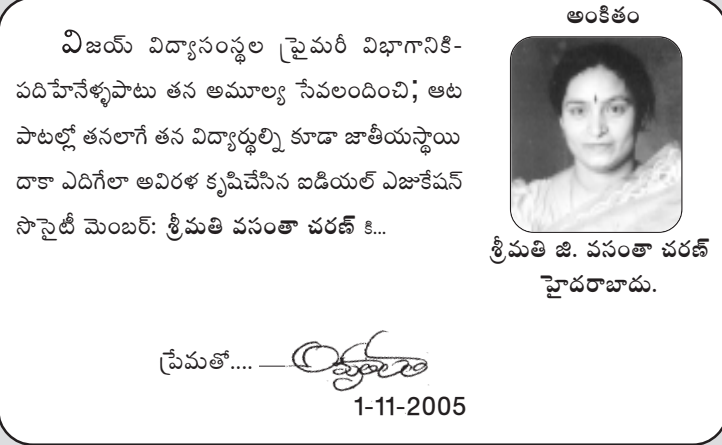 అంకితం
విజయ్ విద్యాసంస్థల ప్రైమరీ విభాగానికి-
పదిహేనేళ్ళపాటు తన అమూల్య సేవలందించి; ఆట
పాటల్లో తనలాగే తన విద్యార్థుల్ని కూడా జాతీయస్థాయి
దాకా ఎదిగేలా అవిరళ కృషిచేసిన ఐడియల్ ఎజుకేషన్
సొసైటీ మెంబర్: శ్రీమతి వసంతా చరణ్ కి...
శ్రీమతి జి. వసంతా చరణ్
హైదరాబాదు.
ప్రేమతో.... —
1-11-2005